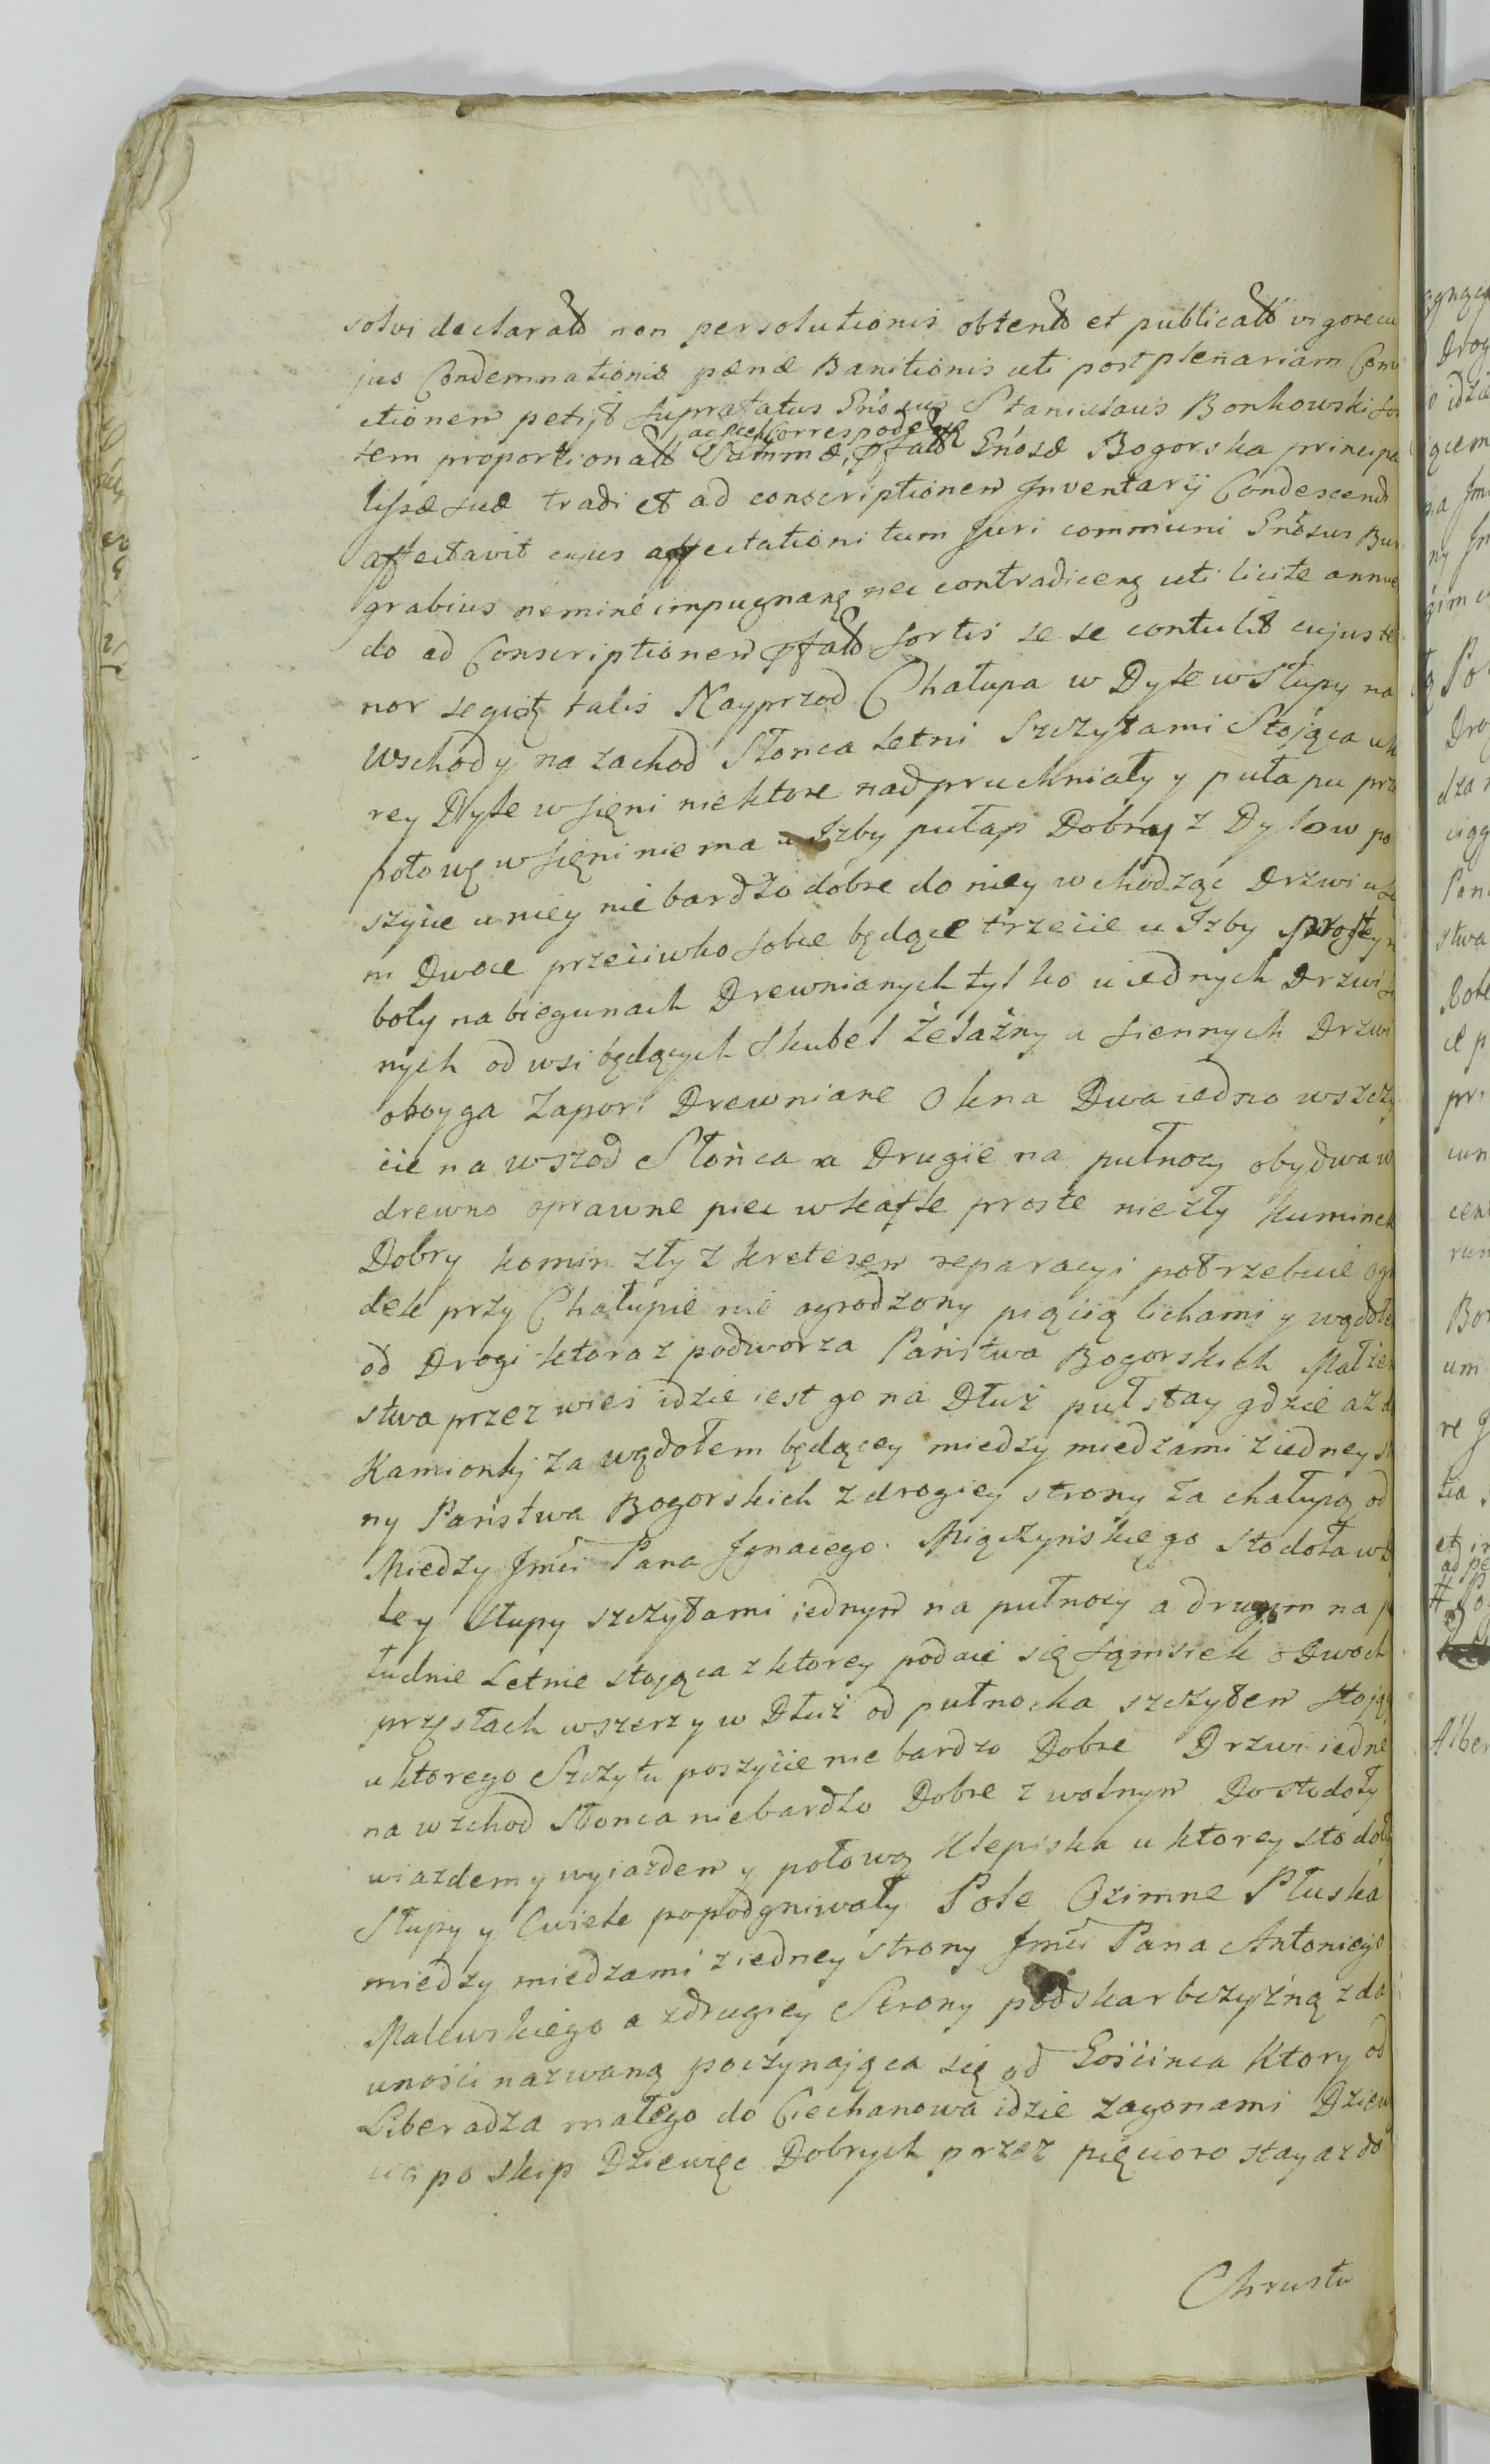 solvi declarato non persolutionis obtento et publicato vigore cu
jus Condemnationis pænæ Banitionis uti post plenariam Conv
ctionem petijt supratatus Gnosus Stanislaus Bonkowski sor
ac Correspodetę
tem proportionato Summæ, pfato Gnosæ Bogorska principa
lissæ suæ tradi et ad conscriptionem Inventarÿ Condescendi
affectavit cujus affectationi tum Juri communi Gnosus Bur
grabius nemine impugnanę nec contradicenę uti licite annue
do ad Conscriptionem pfato sortis se se contulit cujus te
nor seqit talis Nayprzod Chałupa w Dyle w Słupy na
Wschody na zachod Słonca letni Szczytami Stojąca u kt
rey Dyle w sięni niektore nadpruchniały y pułapu prze
połowę w sięni nie ma u Izby pułap Dobry z Dylow po
szycie u niey nie bardzo dobre do niey wchodząc Drzwi u Si
ni Dwoie przeciwko sobie będące trzecie u Izby prostey r
boty na biegunach Drewnianych tylko u iednych Drzwi si
nych od wsi będących skubel żelazny a siennych Drzwi
oboyga Zapori Drewniane Okna Dwa iedno w szczy
cie na wszod Słońca a Drugie na pułnocy obydwa w
drewno oprawne piec w kafle proste niezły kuminek
Dobry komin zły z kretesem reparacyi potrzebuie ogr
dek przy Chałupie nie ogrodzony piącią lichami y wądołe
od Drogi ktora z podworza Państwa Bogorskich Małżeń
stwa przez wieś idzie iest go na Dłuż puł stay gdzie aż d
Kamionki za wądołem będącey miedzy miedzami z iedney st
ny Państwa Bogorskich z drogiey strony za chałupą od
Miedzy Jmći Pana Jgnacego Miączyńskiego Stodoła w D
ley Słupy szczytami iednym na pułnocy a drugim na p
łudnie Letnie stojąca z ktorey podaie się sąmsiek o Dwoch
przęsłach wszerz y w Dłuż od pułnocka szczytem stojąc
u ktorego Szczytu poszycie nie bardzo Dobre Drzwi iedne
na wschod Słonca niebardzo Dobre z wolnym Do stodoły
wiazdem y wyiazdem y połową klepiska u ktorey stodoły
Słupy y Cwiele popodgniwały Pole Ozimne Płuska
miedzy miedzami z iedney strony Jmći Pana Antoniego
Malewskiego a z drugiey Strony podskarbczyźną z da
wności nazwaną poczynająca się od Gościnca ktory od
Liberadza małego do Ciechanowa idzie zagonami Dziew
cią po skip Dziewięc Dobrych przez pięcioro stay aż do
Chrustu